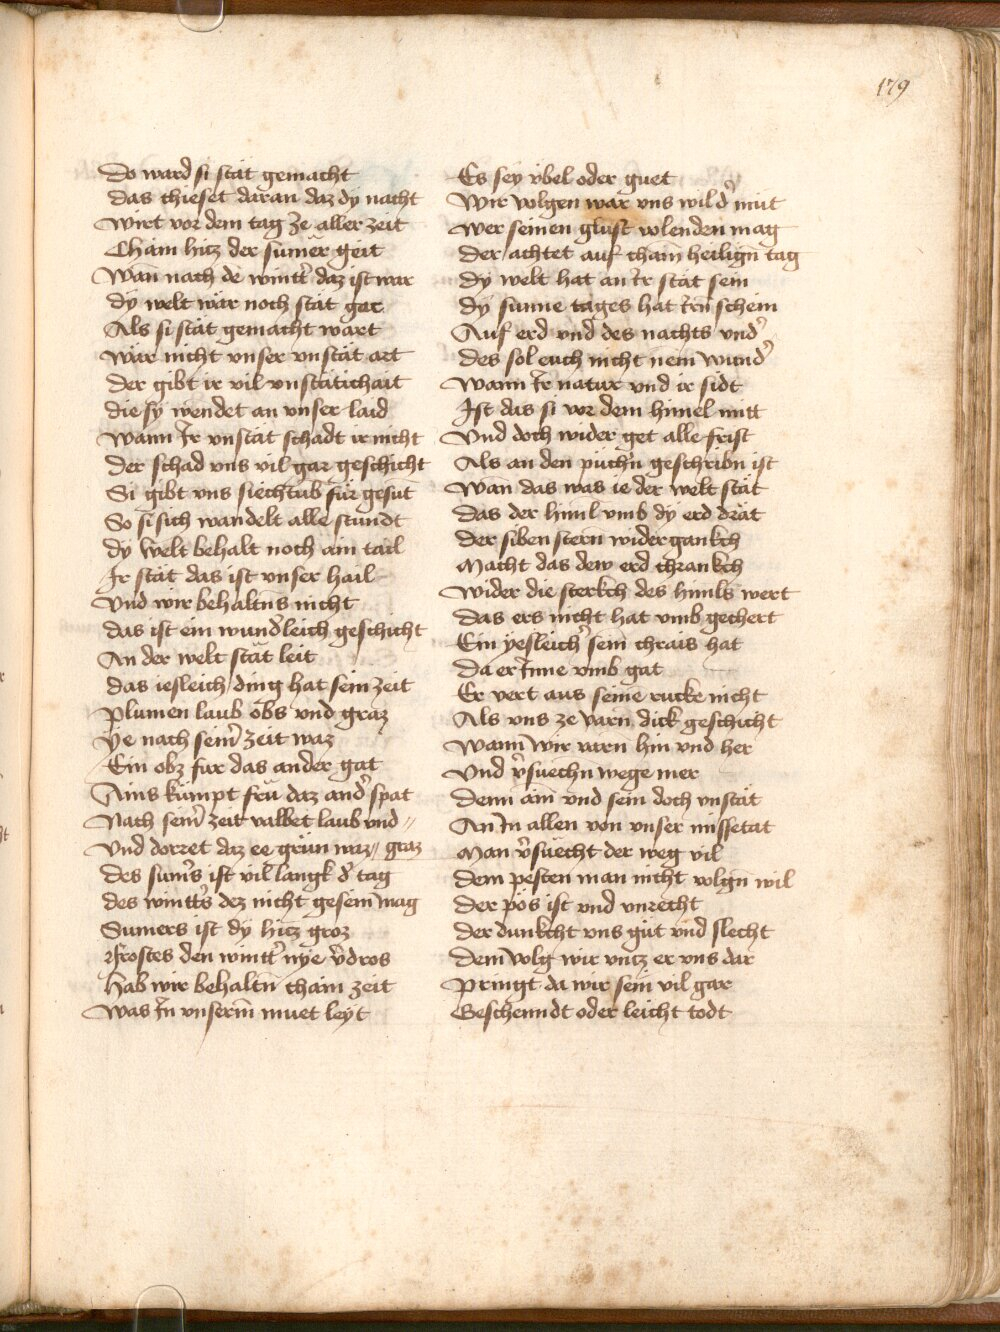 179
Do ward si stät gemacht
Das chieset daran daz dy nacht
Wirt vor dem tag ze aller zeit
Cham hitz der sumer geit
Wan nach de wintt̉ daz ist war
Dy welt wär noch stät gar
Als si stät gemacht wart
Wär nicht vnser vnstät art
Der gibt ir vil vnstätichait
Die sy wendet an vnser laid
Wann Ir vnstät schadt ir nicht
Der schad vns vil gar geschicht
Si gibt vns siechtub für gesūt
So si sich wandelt alle stundt
Dy welt behalt noch ain tail
Ir stät das ist vnser hail
Vnd wir behaltn̄s nicht
Das ist ein wund̉leich geschicht
An der welt stät leit
Das iesleich ding hat sein zeit
Plumen laub obs vnd graz
Ye nach sein̉ zeit waz
Ein obz far das ander gat
Ains kümpt frü daz and̉ spat
Nach sein̉ zeit valbet laub vnd //
Vnd dorret daz ee grün waz // graz
Des sum̉s ist vil langk d̉ tag
Des wintt̉s dez nicht gesein mag
Sumers ist dy hitz groz
Frostes den wintt̉ nye v̉dros
Hab wir behaltn̄ cham zeit
Was In vnserm̄ muet leyt
Es sey v̈bel oder guet
Wir volgen war vns wil d̉ müt
Wer seinen glust volenden mag
Der achtet auf cham̄ heilign̄ tag
Dy welt hat an Ir stät sein
Dy sunne tages hat Irn̄ schein
Auf erd vnd des nachts vnd̉
Des sol euch nicht nem wund̉
Wann Ir natur vnd ir sidt
Ist das si vor dem himel mitt
Vnd doch wider get alle frist
Als an den püchn̄ geschribn̄ ist
Wan das was ie der welt stät
Das der himl vmb dy erd drät
Der siben stern widergankch
Macht das dew erd chrankch
Wider die sterkch des himls wert
Das ers nicht hat vmb gechert
Ein yesleich̉ sein chrais hat
Da er Inne vmb gat
Er vert aus seine rucke nicht
Als vns ze varn dick geschicht
Wann wir varn hin vnd her
Vnd v̉suechn wege mer
Denn ain vnd sein doch vnstät
An In allen von vnser missetat
Man v̉suecht der weg vil
Dem pesten man nicht volgn̄ wil
Der pös ist vnd vnrecht
Der dunkcht vns güt vnd slecht
Dem volg wir vntz er vns dar
Pringt da wir sein vil gar
Geschenndt oder leicht todt